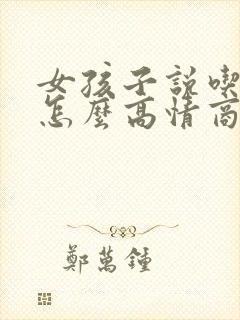 女孩子說喫
怎麼高情商
鄭萬鍾